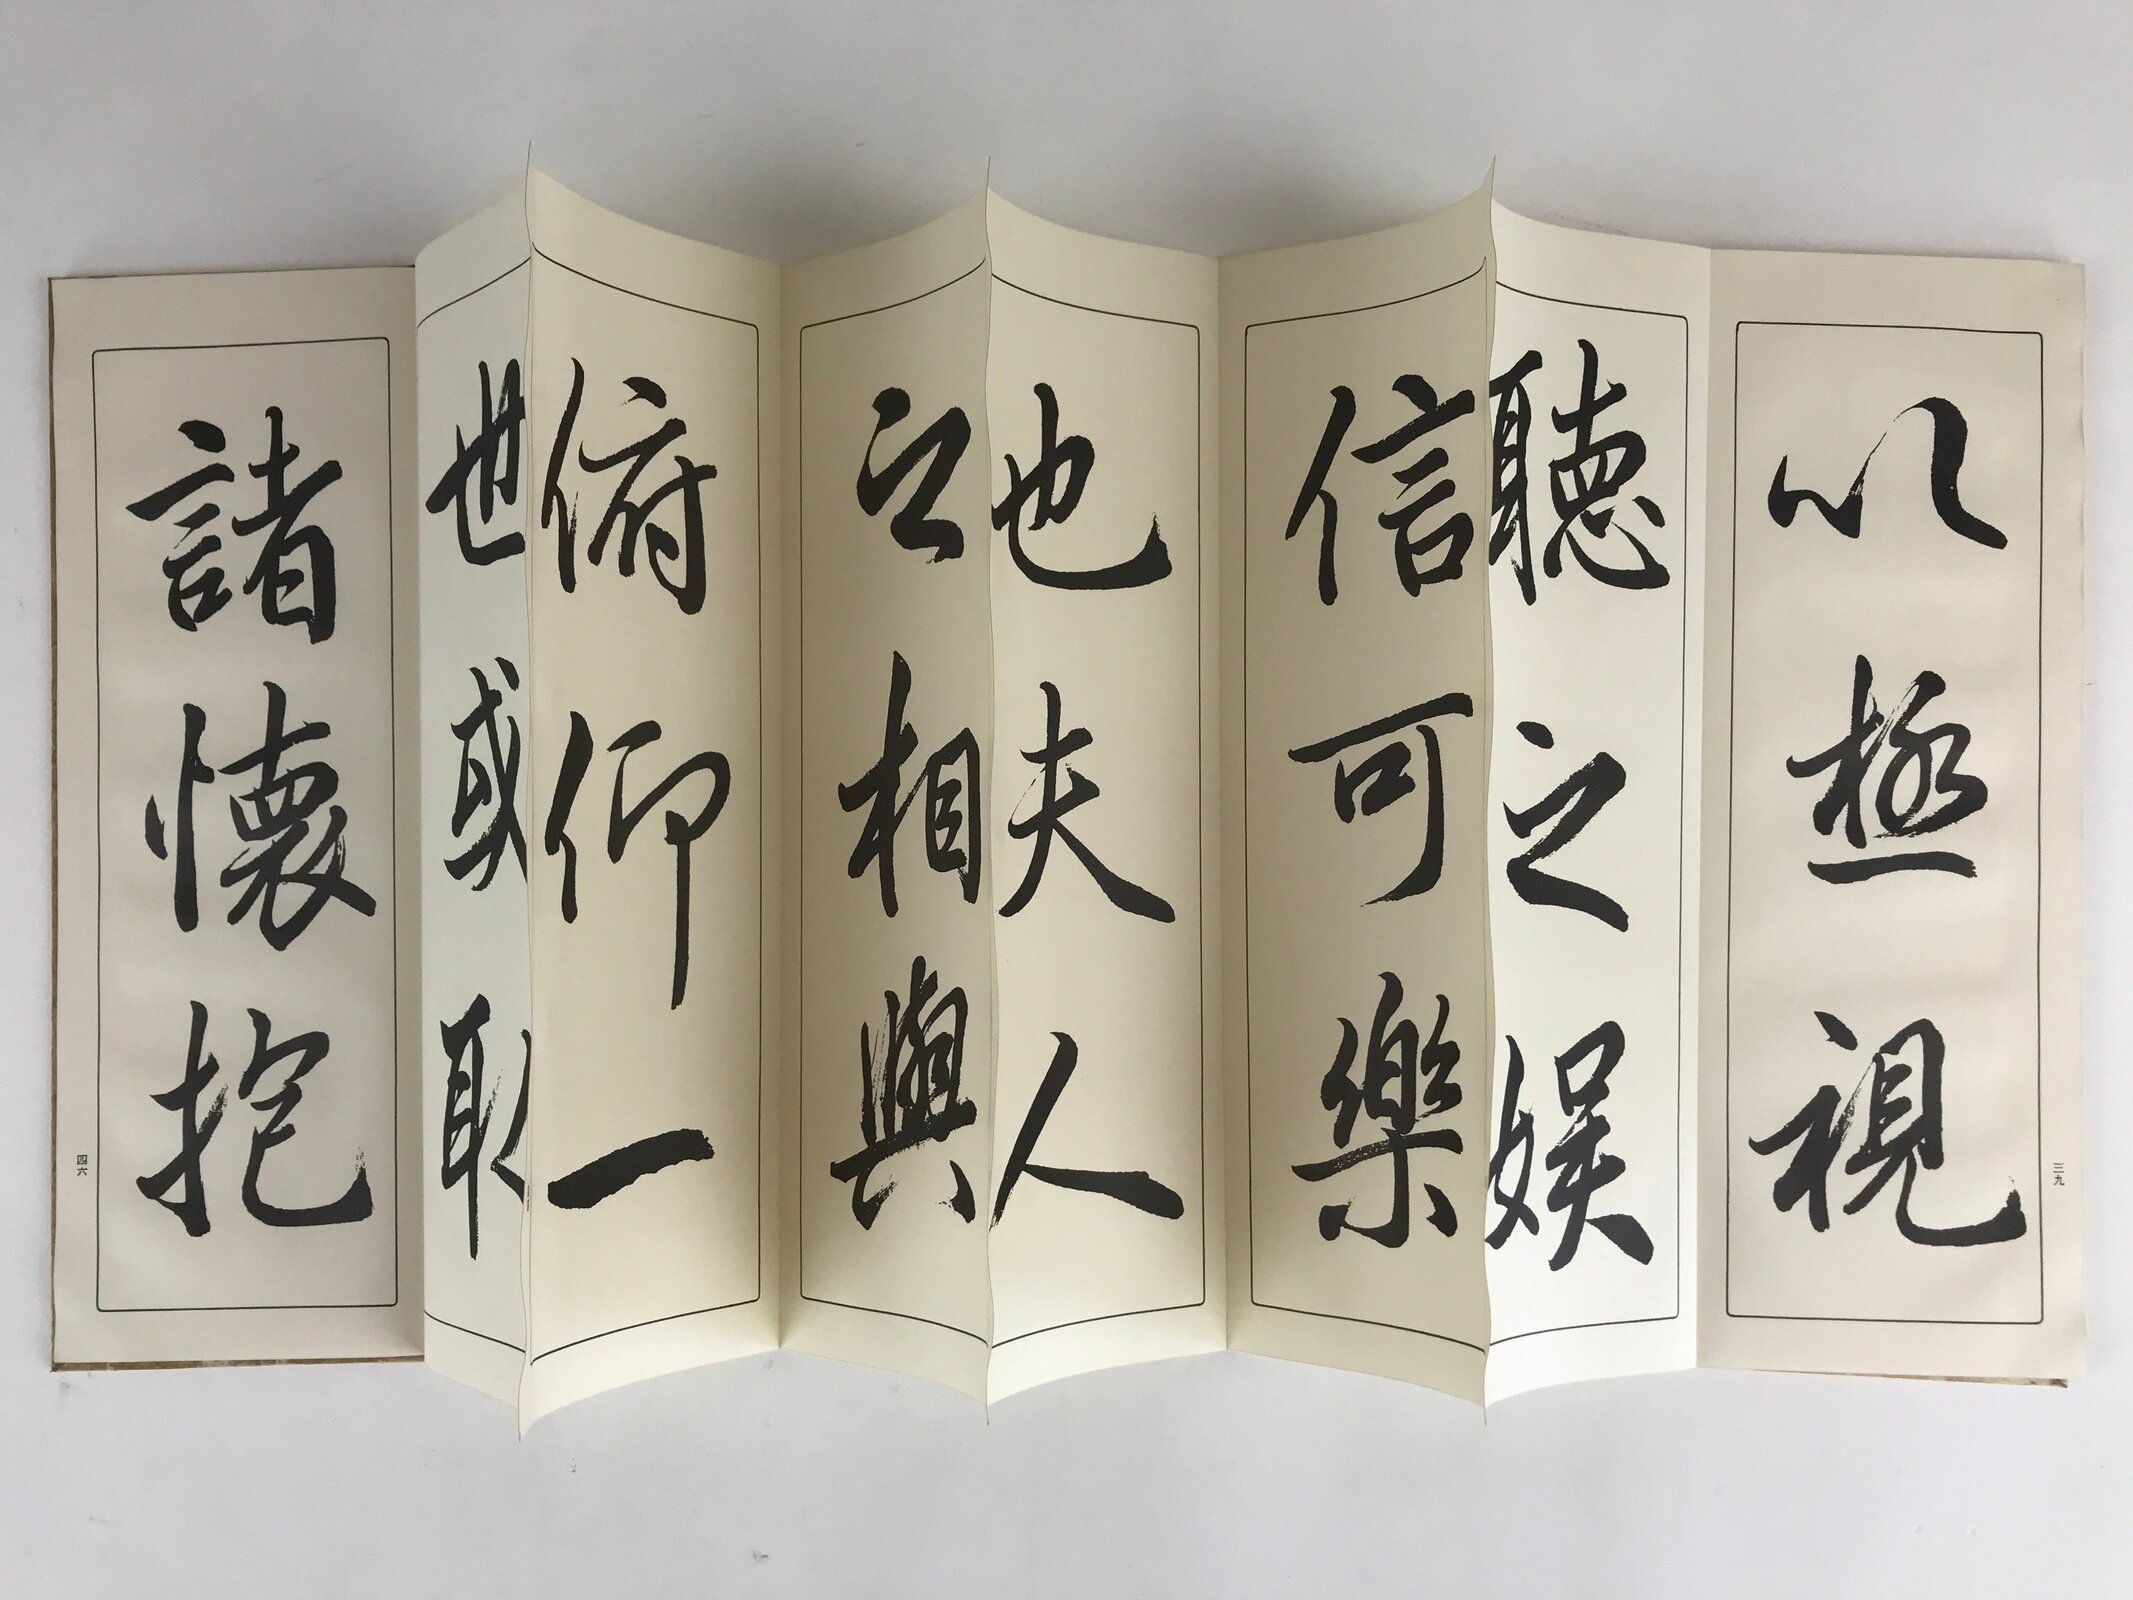 以極視
聽之娯
信可樂
也夫人
之相與
俯仰一
世或取
諸懷抱
三九
四六